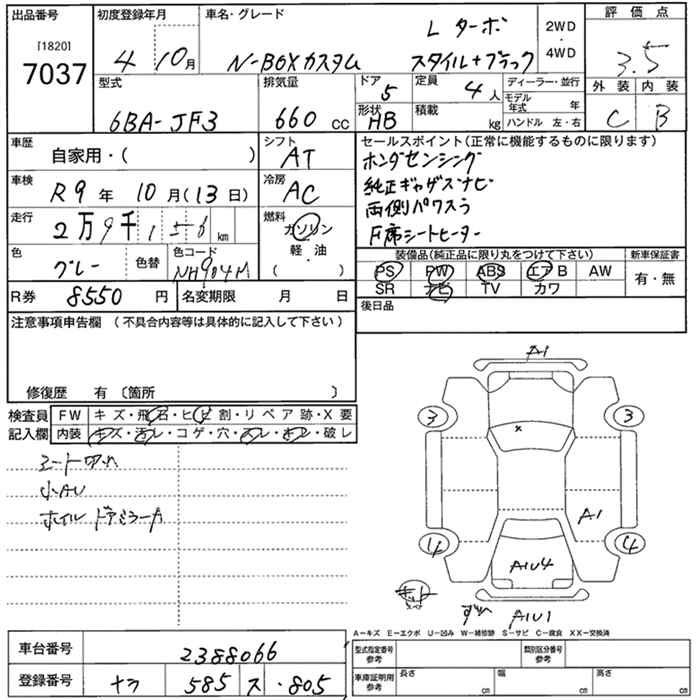 出品番号 初度登録年月 車名・グレード 評価点
[1820] 7037 4 10月 N-BOXカスタム L ターボ スタイル+ブラック 2WD・4WD 3.5
型式 排気量 ドア 定員 ディーラー・並行 外装 内装
6BA-JF3 660 CC 5 4人 モデル年式 年 C B
形状 HB 積載 kg ハンドル 左・右
車歴 自家用・( ) シフト AT セールスポイント(正常に機能するものに限ります)
ホンダセンシング
車検 R9年 10月(13日) 冷房 AC 純正ギャザズナビ
走行 2万9千156km 燃料 ガソリン 軽・油 ( ) 両側パワスラ
F席シートヒーター
色 グレー 色替 色コード NH904M 装備品(純正品に限り丸をつけて下さい) 新車保証書
PS PW ABS エアB AW 有・無
R券 8550円 名変期限 月 日 SR ナビ TV カワ
後日品
注意事項申告欄 (不具合内容等は具体的に記入して下さい)
修復歴 有 〔箇所 〕
検査員 FW キズ・飛石・ヒビ割・リペア跡・X要
記入欄 内装 キズ・汚レ・コゲ・穴・スレ・キレ・破レ
シート切れ
小AU
ホイル ドアミラーカ
A1
3 3
×
A1
4 4
A1U4
キット
A1U1
A−キズ E−エクボ U−凹み W−補修跡 S−サビ C−腐食 XX−交換済
車台番号 2388066 型式指定番号 参考 類別区分番号 参考
登録番号 ナラ 585 ス ・805 車庫証明用 参考 長さ cm 幅 cm 高さ cm